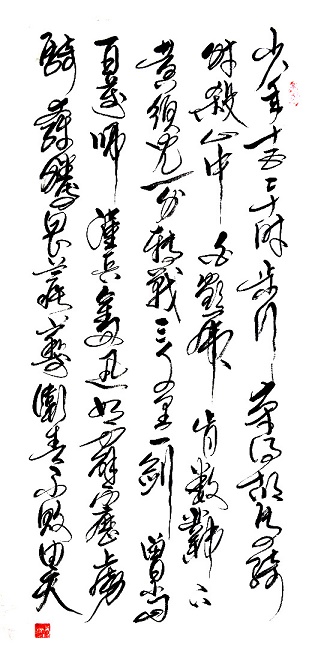 少年十五二十時步行奪得胡馬騎
射殺山中白額虎肯數鄴下
黃須兒一身轉戰三千里一劍曾當
百萬師漢兵奮迅如霹靂虜
騎崩騰畏蒺藜衛青不敗由天